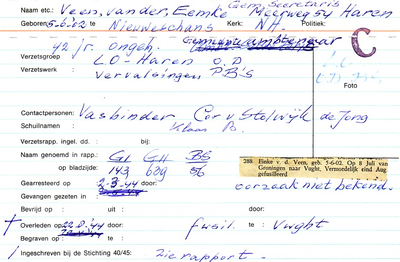 Gem. Secretaris
Naam etc.: Veen, van der, Eemke Meerweg 54 Haren
Geboren: 5-6-02 te Nieuweschans Kerk: N.H. Politiek:
42 jr. Ongeh.
C
Verzetsgroep : LO-Haren O.D
Verzetswerk : Vervalsingen P.B's
Foto
Contactpersonen: Vasbinder, Cor v Stolwijk de Jong
Schuilnamen : Klaas Po.
Verzetsrapp. ingel. dd. : bij:
Naam genoemd in rapp.: GI GH BS
op bladzijde: 143 639 56
288 Einke v. d. Veen, geb. 5-6-02. Op 8 Juli van
Groningen naar Vught. Vermoedelijk eind Aug.
gefusilleerd
Gearresteerd op : 2-3-44 door: oorzaak niet bekend.
Gevangen gezeten in :
Bevrijd op : uit : door:
† Overleden op : 22-8-'44 door: fusil. te: Vught
Begraven op : te:
Ingeschreven bij de Stichting 40/45: zie rapport.